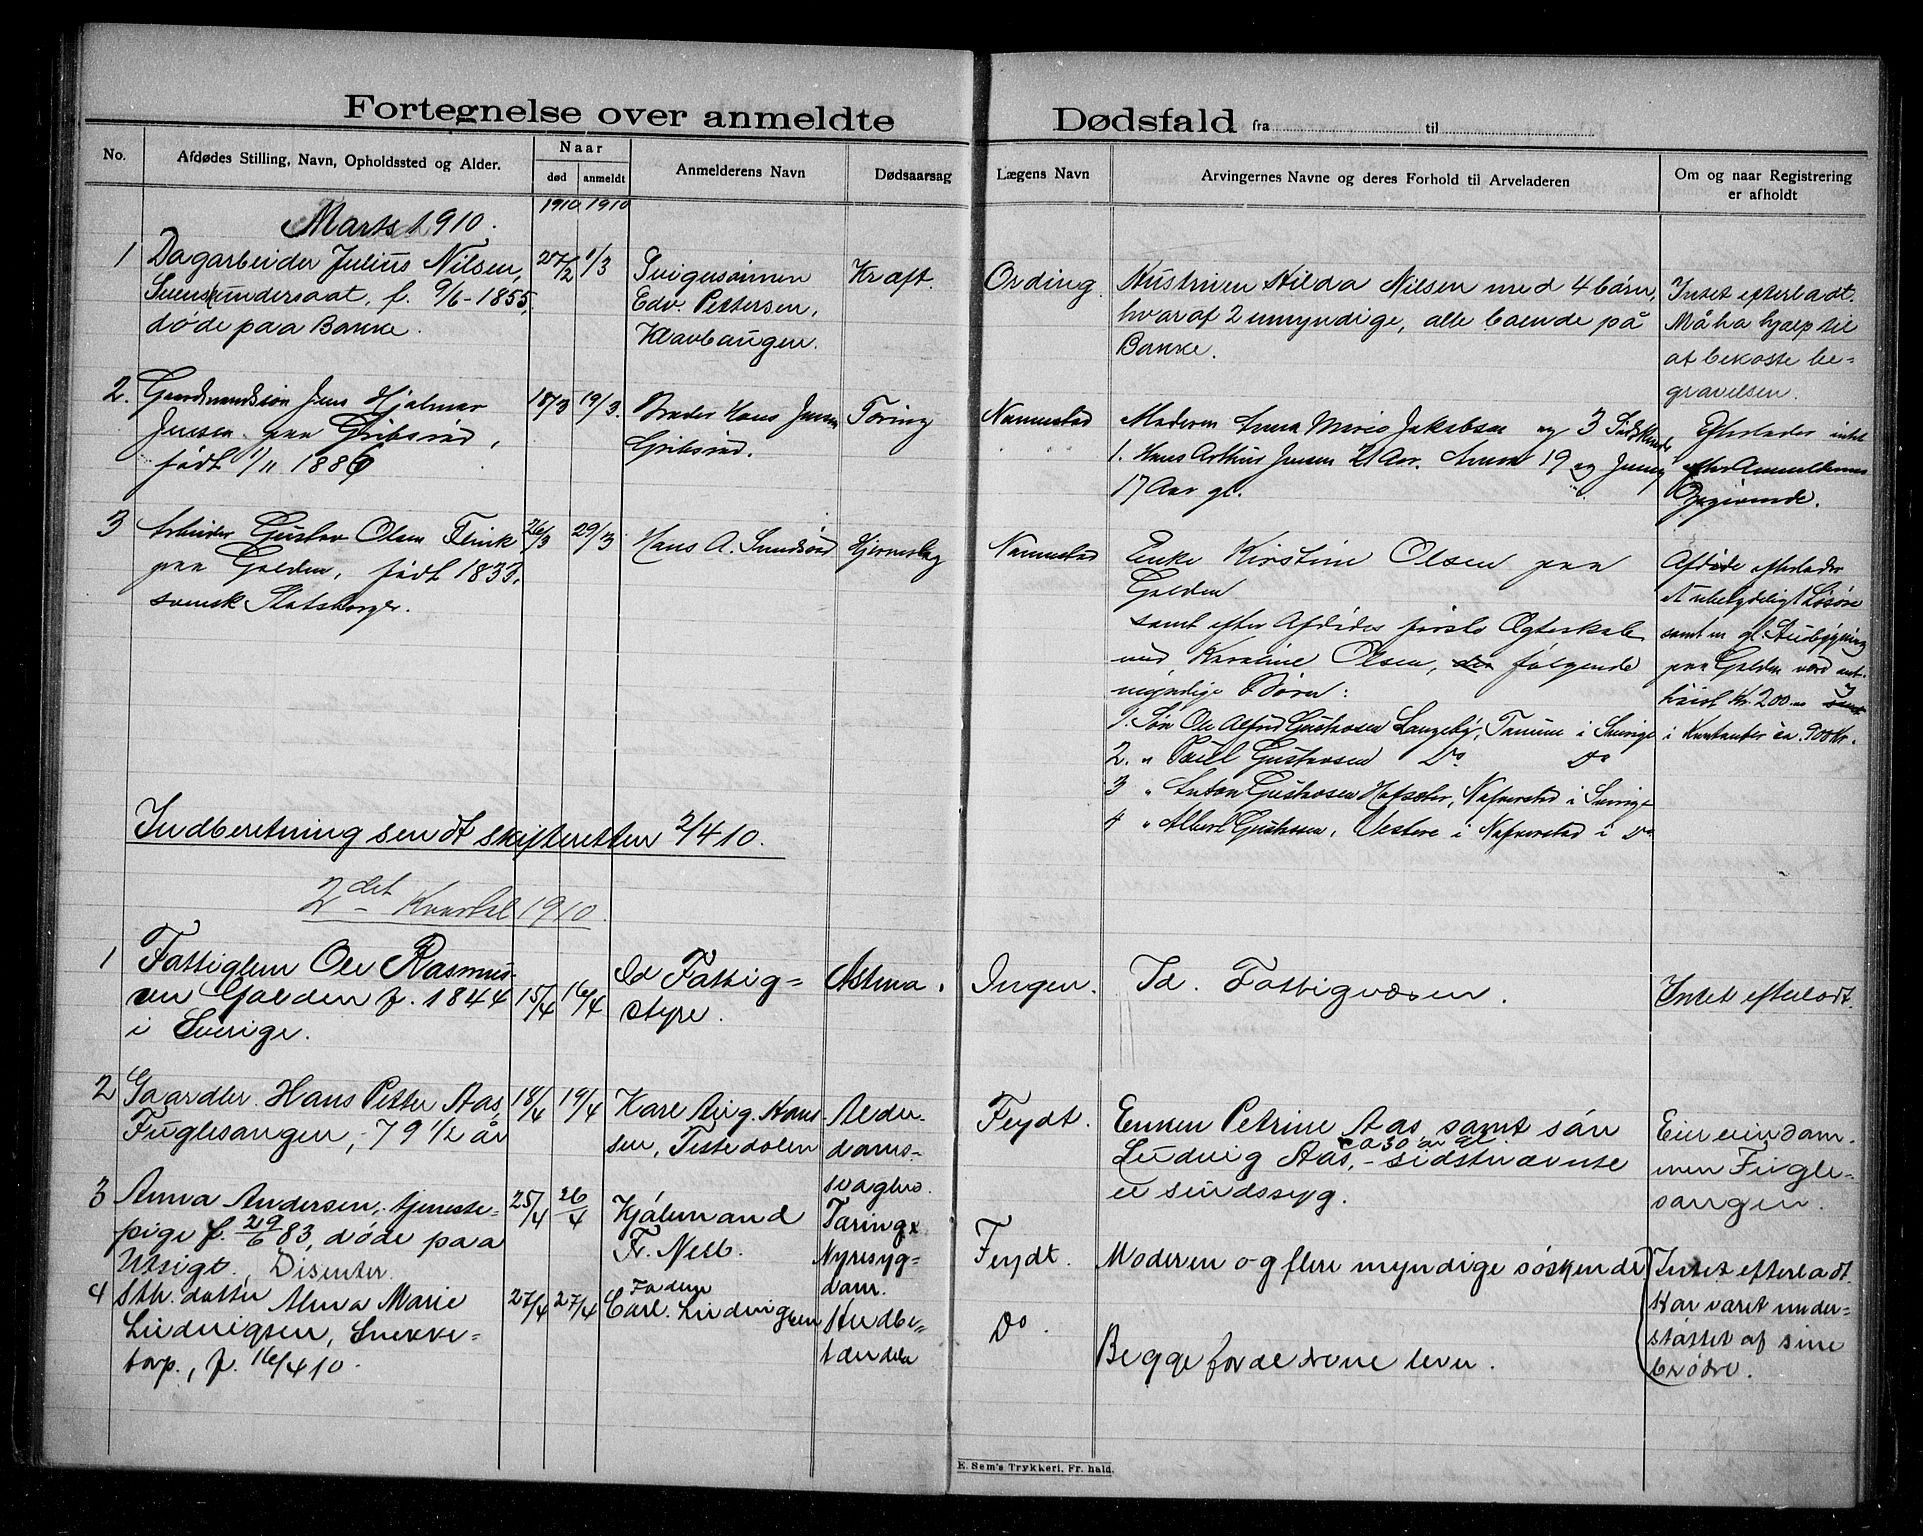 Fortegnelse over anmeldte Dødsfald fra til
No. Afdødes Stilling, Navn, Opholdssted og Alder. Naar død anmeldt Anmelderens Navn Dødsaarsag Lægens Navn Arvingernes Navne og deres Forhold til Arveladeren Om og naar Registrering er afholdt
Marts 1910. 1910 1910
1 Dagarbeider Julius Nilsen, 27/2 1/3 Svigersønnen Kræft. Ording. Hustruen Hilda Nilsen med 4 børn, Intet efterladt.
Svensk undersaat, f. 9/6-1855, Edv. Pettersen, hvoraf 2 umyndige, alle boende på Må ha hjælp til
døde paa Bakke. Klavhaugen. Bakke. at bekoste be-
gravelsen.
2. Gaardmandssøn Jens Hjalmar 18/3 19/3. Broder Hans Jensen Tæring Nannestad Moderen Anna Marie Jakobsen og 3 Sødskende Efterlader intet
Jensen paa Gribsrød, Gribsrød. 1. Hans Arthur Jensen 21 Aar. Anna 19 og Jenny efter Anmelderens
født 1/11 1886 17 Aar gl. Opgivende.
3 Arbeider Gustav Olsen Flink 26/3 29/3 Hans A. Hjerneslag Nannestad Enke Kirstine Olsen paa Afdøde efterlader
paa Golden, født 1833, Golden et ubetydeligt Løsøre
svensk Statsborger. samt efter Afdødes første Ægteskab samt en gl. Husbygning
med Karoline Olsen, følgende paa Golden værd
myndige Børn: Kr. 200.
1. Søn Ole Alfred Gustavsen Langeby, Tanum i Sverige i Kontanter ca. 900 Kr.
2. " Paul Gustavsen Do Do
3 " Anton Gustavsen Nafverstad i Sverige
4 " Albert Gustavsen, Vestere i Nafverstad i Do
Indberetning sendt skifteretten 2/4 10.
2det Kvartal 1910.
1 Fattiglem Ole Rasmus- 15/4 16/4 Id Fattig= Astma. Ingen. Id. Fattigvæsen. Intet efterladt.
sen Golden f. 1844 styre.
i Sverige.
2 Gaardbr. Hans Petter Aas, 18/4 19/4 Karl Aug. Han- Alder- Feydt. Enken Petrine Aas samt søn Eier eiendom-
Fuglesangen, 79 1/2 år sen, Tistedalen doms- Ludvig Aas, ca 30 år gl. - sidstnævnte men Fugle-
svaghed. er sindssyg. sangen.
3 Anna Andersen, tjeneste- 25/4 26/4 Kjøbmand Tæring & Feydt. Moderen og flere myndige søskende Intet efterladt.
pige f. 29/6 83, døde paa Fr. Neeb. Nyresyg- Har været under-
Utsigt. Disenter. dom. støttet af sine
brødre.
4 Sth. datter Alma Marie 27/4 27/4 Faderen Do. Begge forældrene lever.
Ludvigsen, Snekke- Carl Ludvigsen
torp., f. 16/4 10.
E. Sem's Trykkeri, Fr.hald.